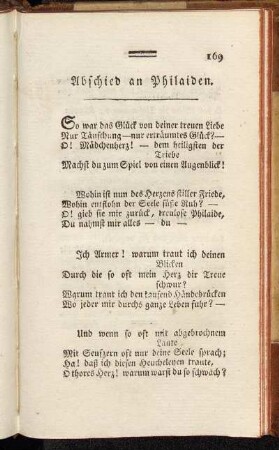 169
Abschied an Philaiden.
So war das Glück von deiner treuen Liebe
Nur Täuschung—nur erträumtes Glück?—
O! Mädchenherz! — dem heiligsten der
Triebe
Machst du zum Spiel von einen Augenblick!
Wohin ist nun des Herzens stiller Friede,
Wohin entflohn der Seele süße Ruh? —
O! gieb sie mir zurück, treulose Philaide,
Du nahmst mir alles — du —
Ich Armer! warum traut ich deinen
Blicken
Durch die so oft mein Herz dir Treue
schwur?
Warum traut ich den tausend Händedrücken
Wo jeder mir durchs ganze Leben fuhr? —
Und wenn so oft mit abgebrochnem
Laute
Mit Seufzern oft nur deine Seele sprach;
Ha! daß ich diesen Heucheleyen traute,
O thores Herz! warum warst du so schwach?